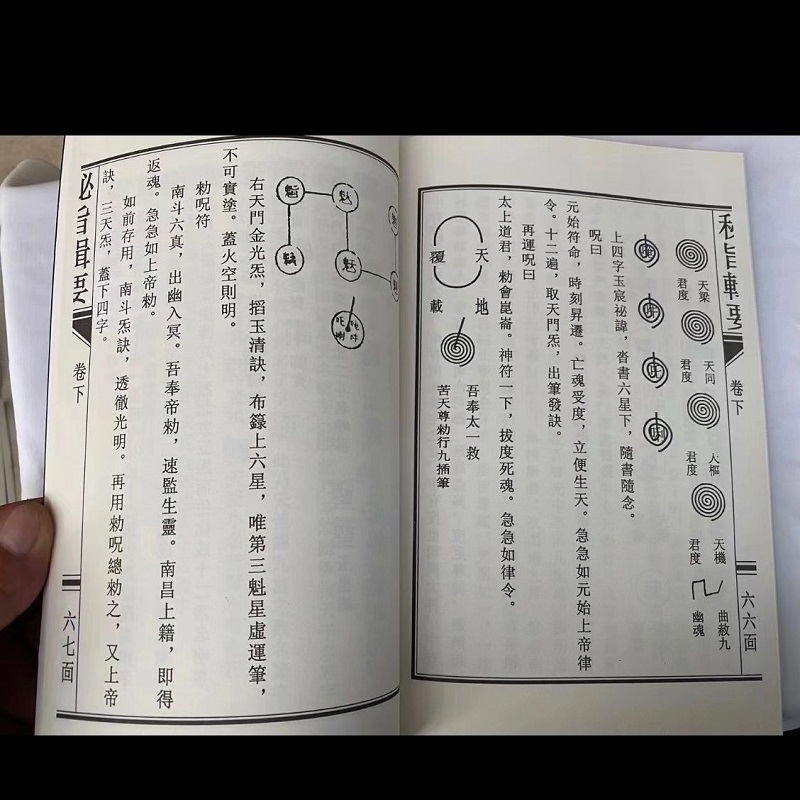 卷下
六六面
天梁
君度
天同
君度
天樞
君度
天機
君度
曲赦九
幽魂
上四字玉宸祕諱，沓書六星下，隨書隨念。
呪曰
元始符命，時刻昇遷。亡魂受度，立便生天。急急如元始上帝律
令。十二遍，取天門炁，出筆發訣。
再運呪曰
太上道君，勅會崑崙。神符一下，拔度死魂。急急如律令。
天
覆
地
載
吾奉太一救
苦天尊勅行九插筆
右天門金光炁，搯玉清訣，布籙上六星，唯第三魁星虛運筆，
不可實塗。蓋火空則明。
勅呪符
南斗六真，出幽入冥。吾奉帝勅，速監生靈。南昌上籍，即得
返魂。急急如上帝勅。
如前存用，南斗炁訣，透徹光明。再用勅呪總勅之，又上帝
訣，三天炁，蓋下四字。
祕旨輯要
卷下
六七面